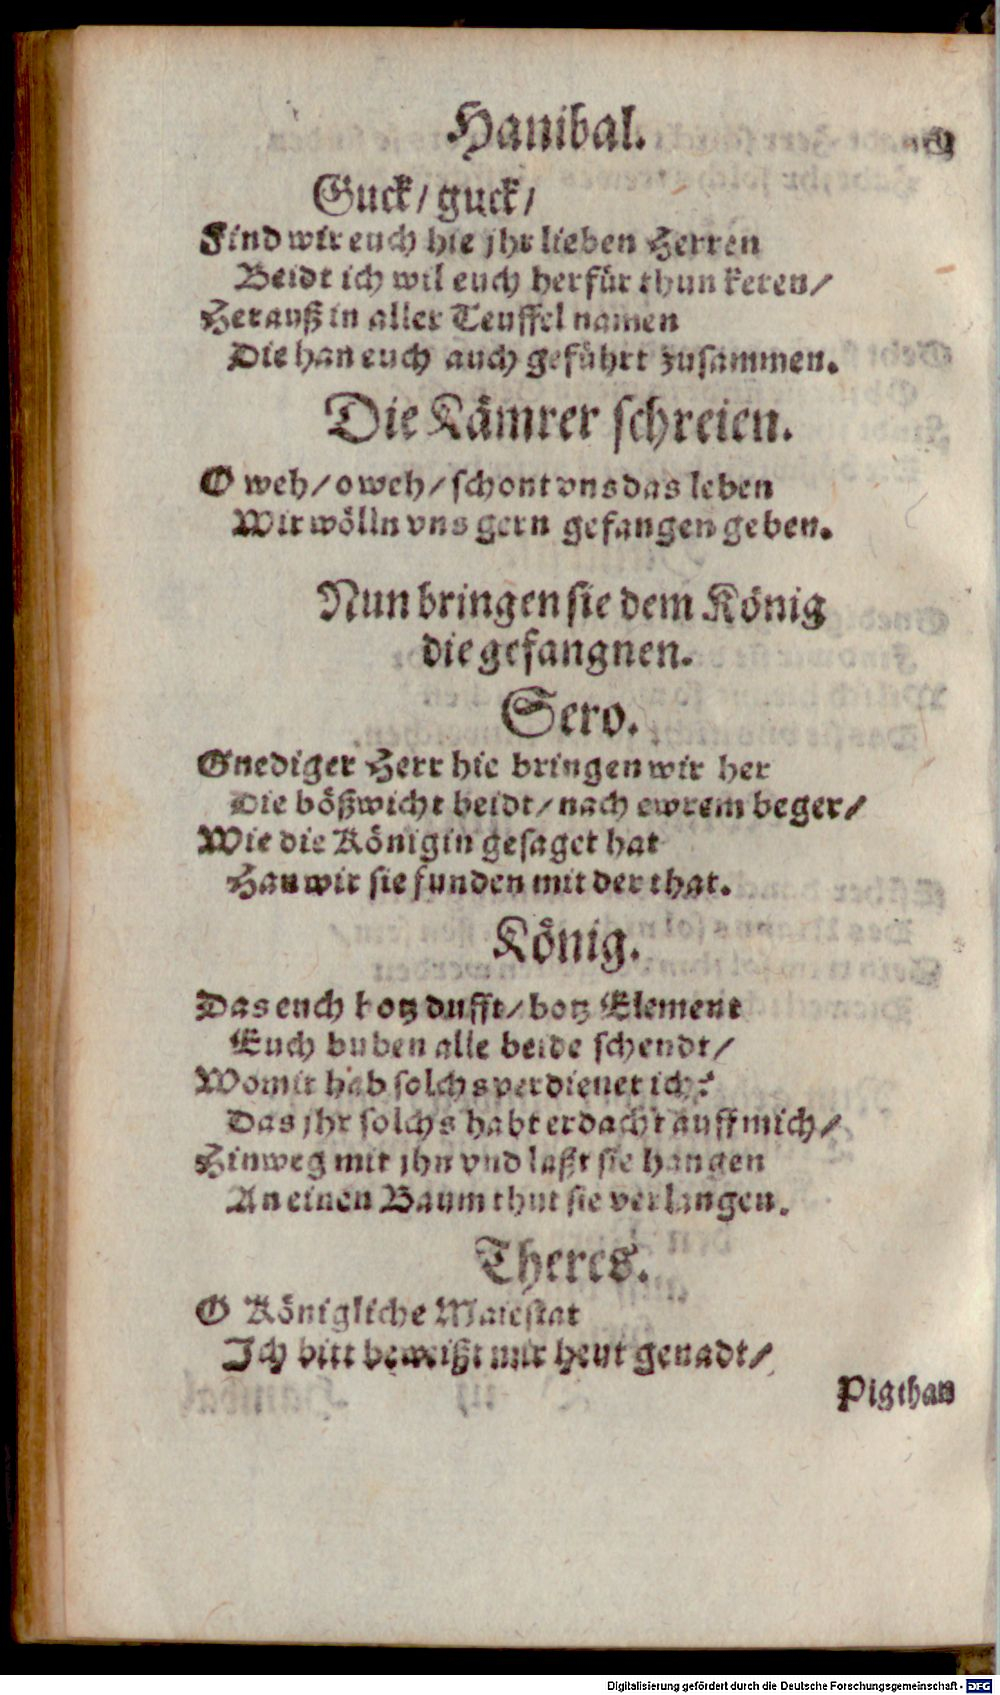 Hanibal.
Guck/ guck/
Find wir euch hie jhr lieben Herren
Beidt ich wil euch herfür thun keren/
Herauß in aller Teuffel namen
Die han euch auch geführt zusammen.
Die Kämrer schreien.
O weh/ o weh/ schont vns das leben
Wir wölln vns gern gefangen geben.
Nun bringen sie dem König
die gefangnen.
Sero.
Gnediger Herr hie bringen wir her
Die bößwicht beidt/ nach ewrem beger/
Wie die Königin gesaget hat
Han wir sie funden mit der that.
König.
Das euch botz dufft/ botz Element
Euch buben alle beide schendt/
Womit hab solchs verdienet ich?
Das jhr solchs habt erdacht auff mich/
Hinweg mit jhn vnd laßt sie hangen
An einen Baum thut sie verlangen.
Theres.
O Königliche Maiestat
Ich bitt beweißt mir heut genadt/
Pigthan
Digitalisierung gefördert durch die Deutsche Forschungsgemeinschaft - DFG